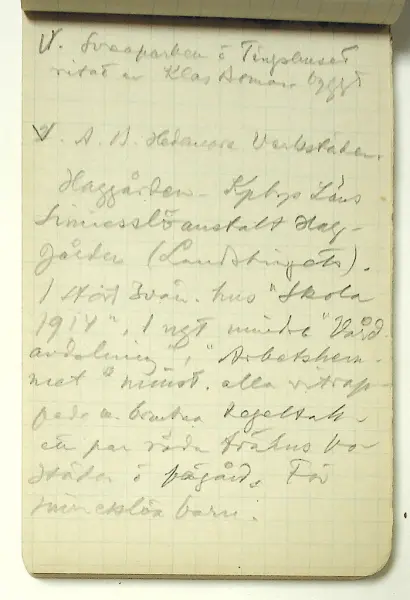 V. Sveaparken o Tingshuset
ritat av Klas Boman byggt
V. A. B. Hedemora Verkstäder.
Haggården - Kpbgs Läns
Sinnesslöanstalt Hag-
gården (Landstingets).
1 stort 3vån. hus "Skola
1914", 1 ngt mindre "Vård
avdelning", "Arbetshem-
met" minst. alla vitrap-
pade m. branta tegeltak.
ett par röda trähus bo-
städer o fägård. För
sinnesslöa barn.